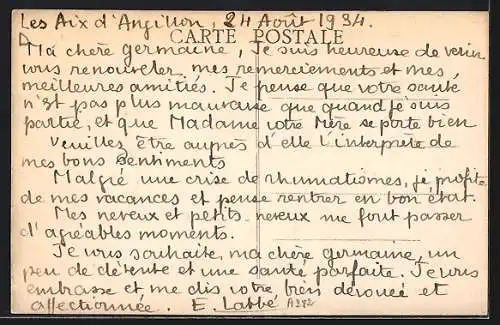 Les Aix d'Angillon, 24 Août 1934.
CARTE POSTALE
Ma chère germaine, Je suis heureuse de venir
vous renouveler mes remerciements et mes
meilleures amitiés. Je pense que votre santé
n'est pas plus mauvaise que quand je suis
partie, et que Madame votre Mère se porte bien
Veuillez être auprès d'elle l'interprète de
mes bons sentiments
Malgré une crise de rhumatismes, je profite
de mes vacances et pense rentrer en bon état.
Mes neveux et petits-neveux me font passer
d'agréables moments.
Je vous souhaite, ma chère germaine, un
peu de détente et une santé parfaite. Je vous
embrasse et me dis votre bien dévouée et
affectionnée. E. Labbé A382